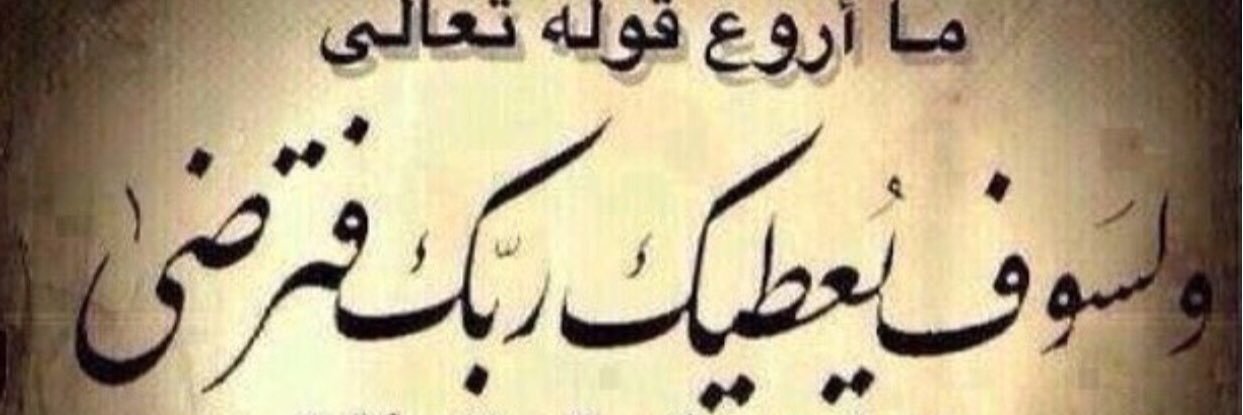 ما أروع قوله تعالى
ولسَوف يُعطيك ربّك فترضىٰ